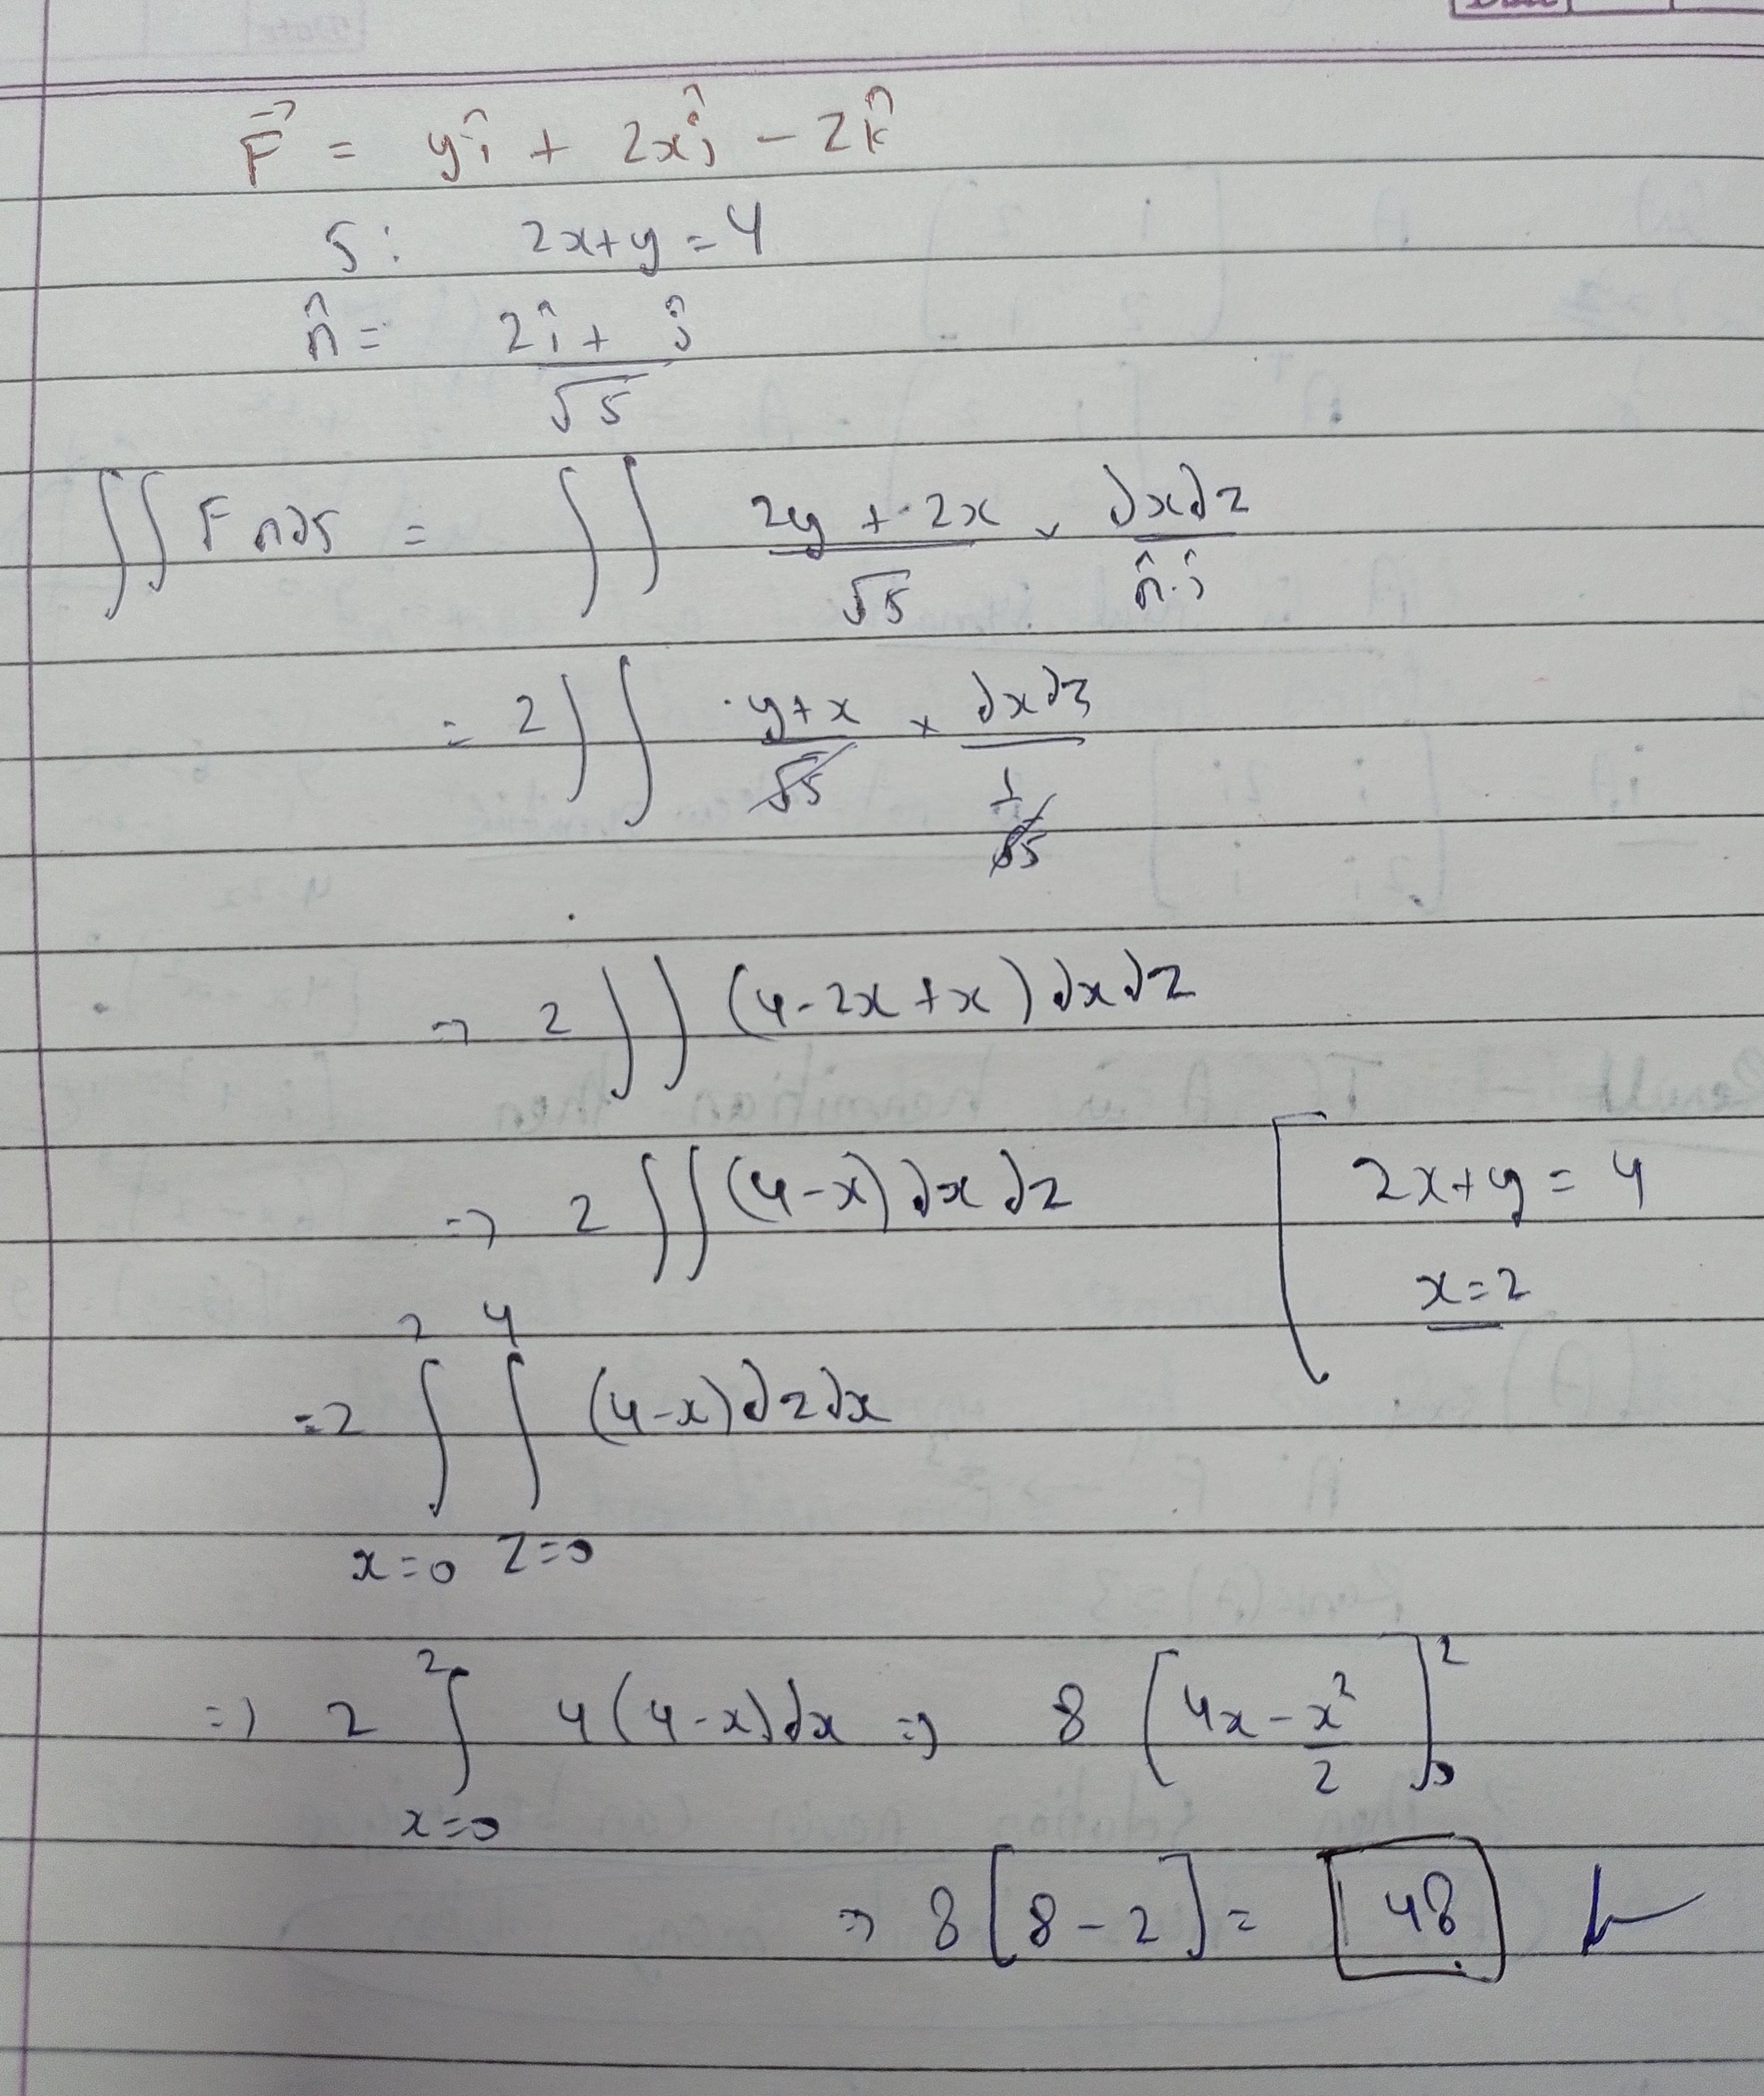 F⃗ = yî + 2xĵ − zk̂
S: 2x+y=4
n̂ = (2î + ĵ)/√5
∬ F n ds = ∬ (2y + 2x)/√5 × dxdz/(n̂·ĵ)
= 2∬ (y+x)/√5 × dxdz/(1/√5)
⇒ 2∬ (4-2x+x) dxdz
⇒ 2∬(4-x) dx dz [ 2x+y=4
x=2
=2 ∫_{x=0}^{2} ∫_{z=0}^{4} (4-x)dzdx
⇒ 2 ∫_{x=0}^{2} 4(4-x)dx ⇒ 8 [4x - x²/2]_0^2
⇒ 8[8-2] = 48